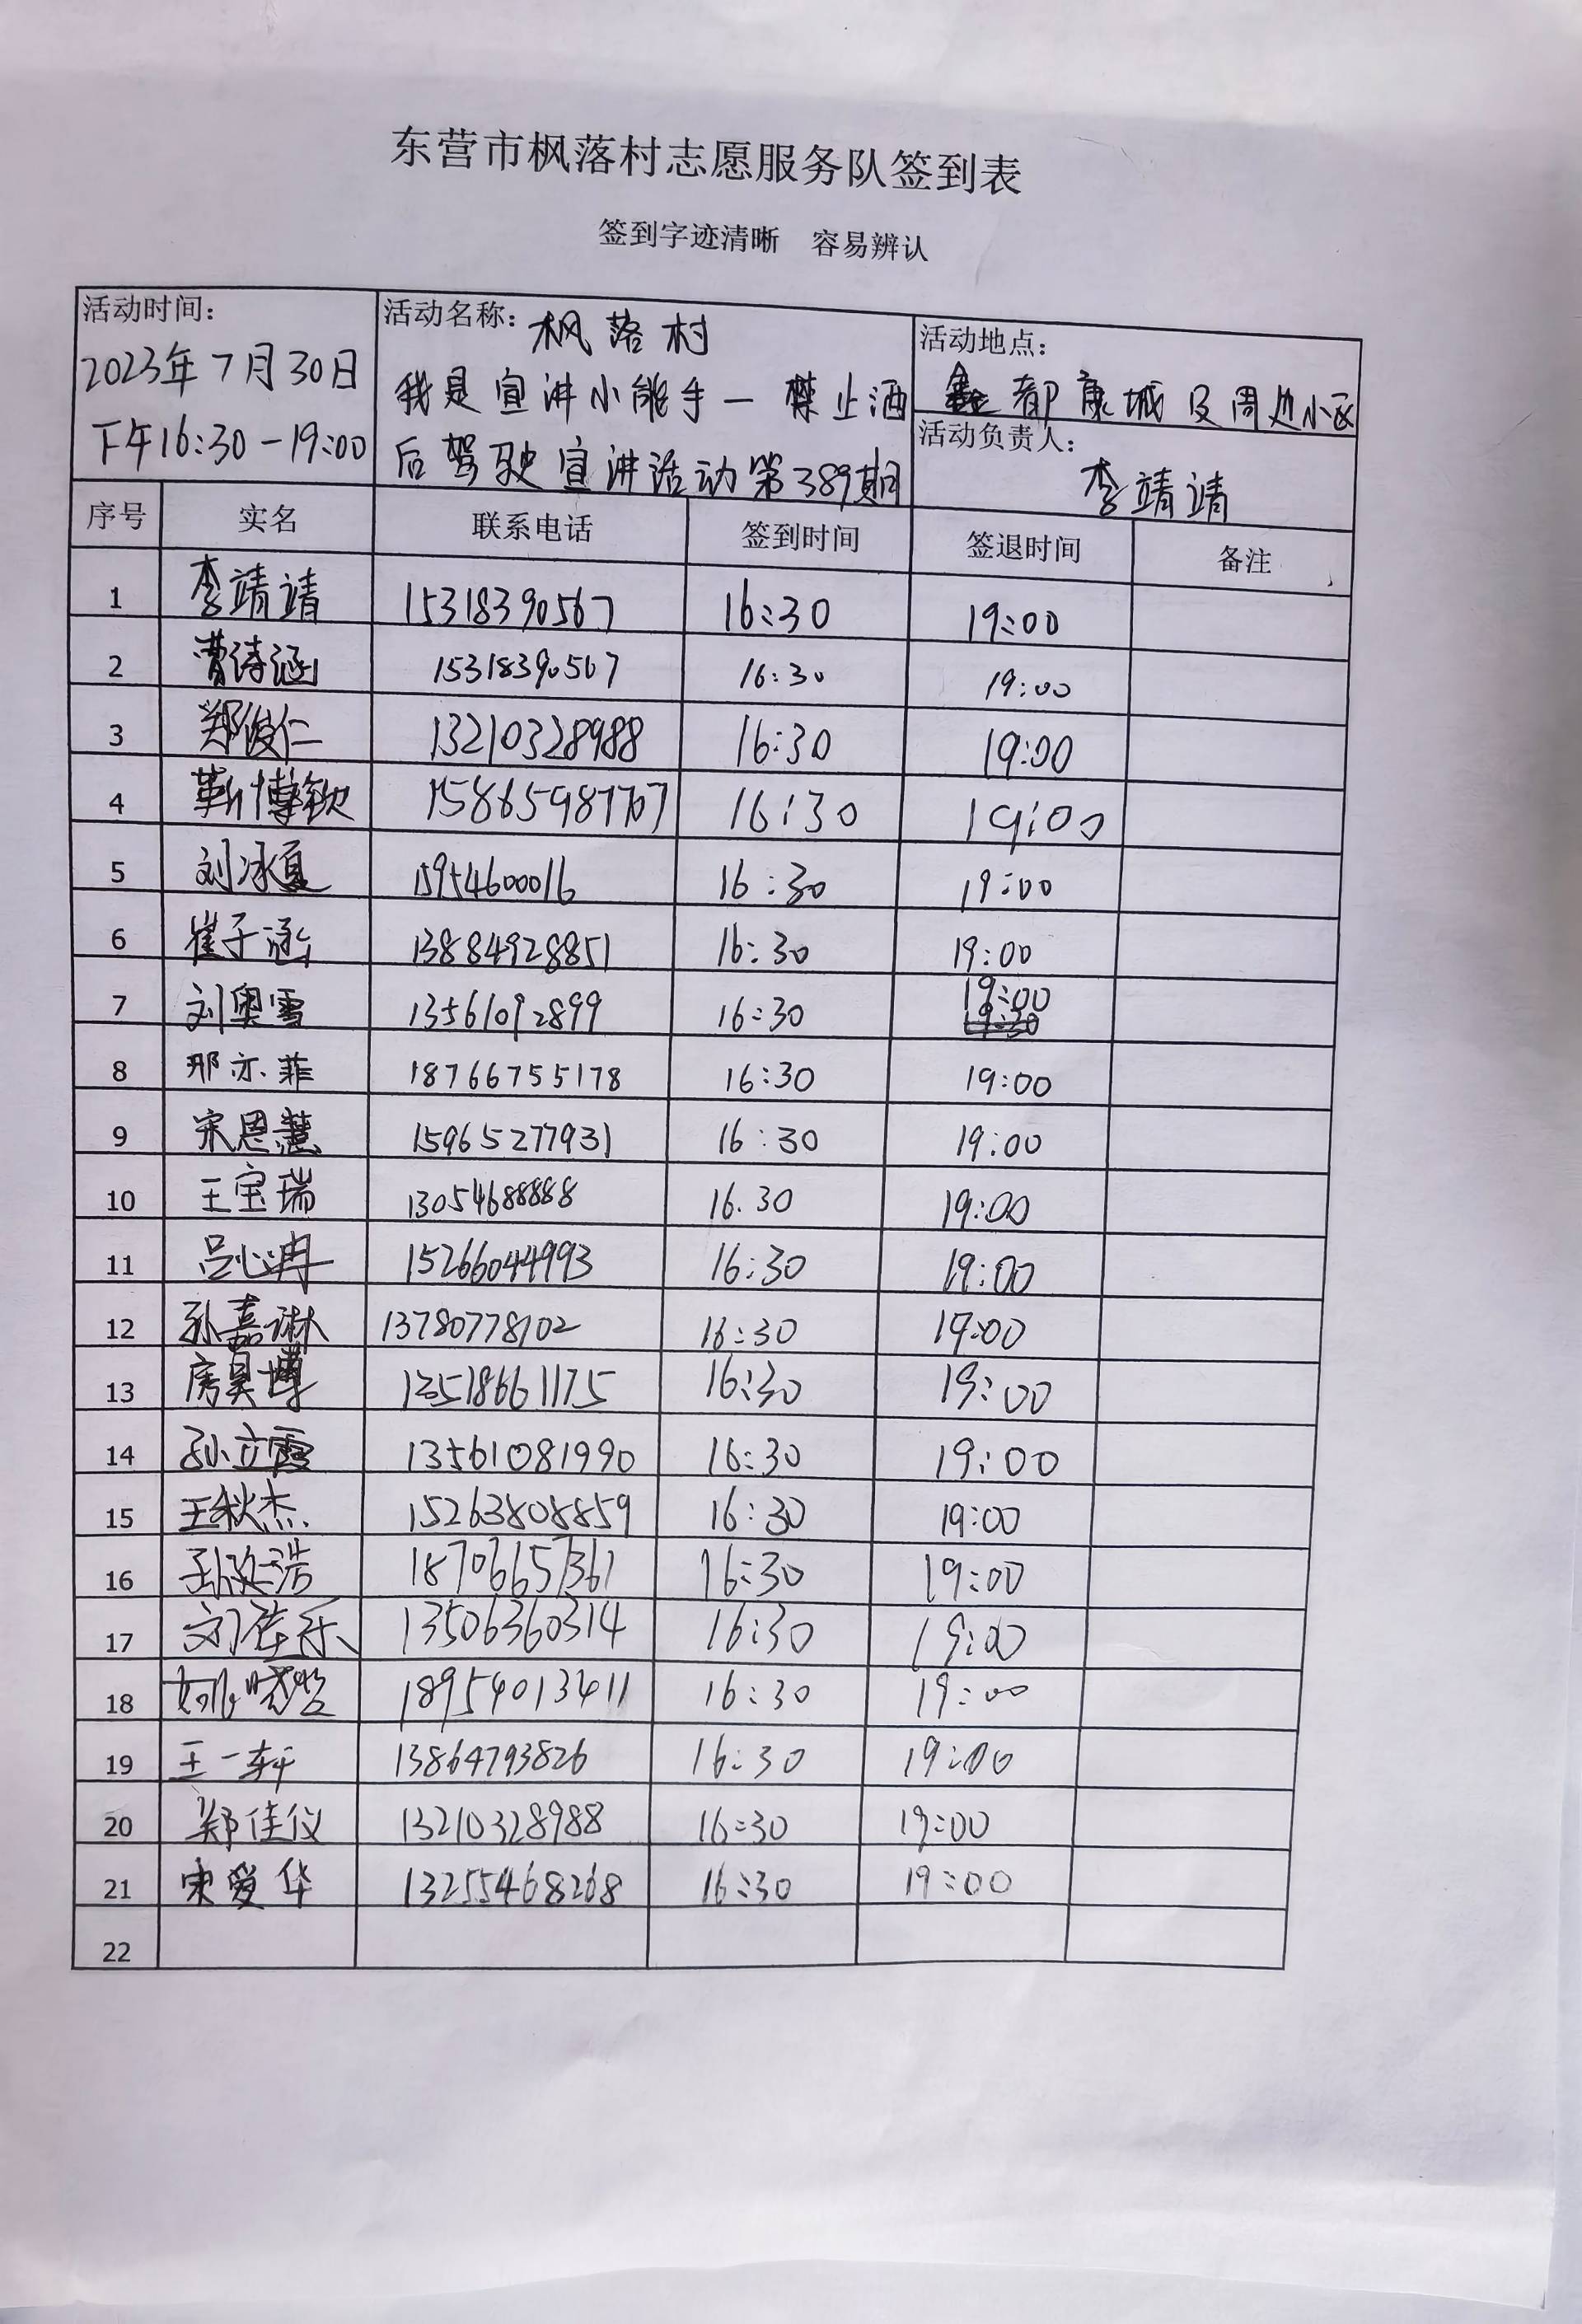 东营市枫落村志愿服务队签到表
签到字迹清晰 容易辨认
活动时间：
2023年7月30日
下午16:30-19:00
活动名称：枫落村
我是宣讲小能手—禁止酒
后驾驶宣讲活动第389期
活动地点：
鑫都康城及周边小区
活动负责人：
李靖靖
序号 实名 联系电话 签到时间 签退时间 备注
1 李靖靖 15318390567 16:30 19:00
2 曹诗涵 15318390567 16:30 19:00
3 郑俊仁 13210328988 16:30 19:00
4 靳博钦 15865987707 16:30 19:00
5 刘冰夏 15954600016 16:30 19:00
6 崔子涵 13884928851 16:30 19:00
7 刘奥雪 13561092899 16:30 19:00
8 邢亦菲 18766755178 16:30 19:00
9 宋恩慧 15965277931 16:30 19:00
10 王宝瑞 13054688888 16.30 19:00
11 吕心冉 15266044993 16:30 19:00
12 孙嘉琳 13780778102 16:30 19:00
13 房昊博 13518661175 16:30 19:00
14 孙立霞 13561081990 16:30 19:00
15 王秋杰 15263808859 16:30 19:00
16 18706657367 16:30 19:00
17 刘佳乐 13506360314 16:30 19:00
18 18954013411 16:30 19:00
19 王一轩 13864793826 16:30 19:00
20 郑佳仪 13210328988 16:30 19:00
21 宋爱华 13255468268 16:30 19:00
22